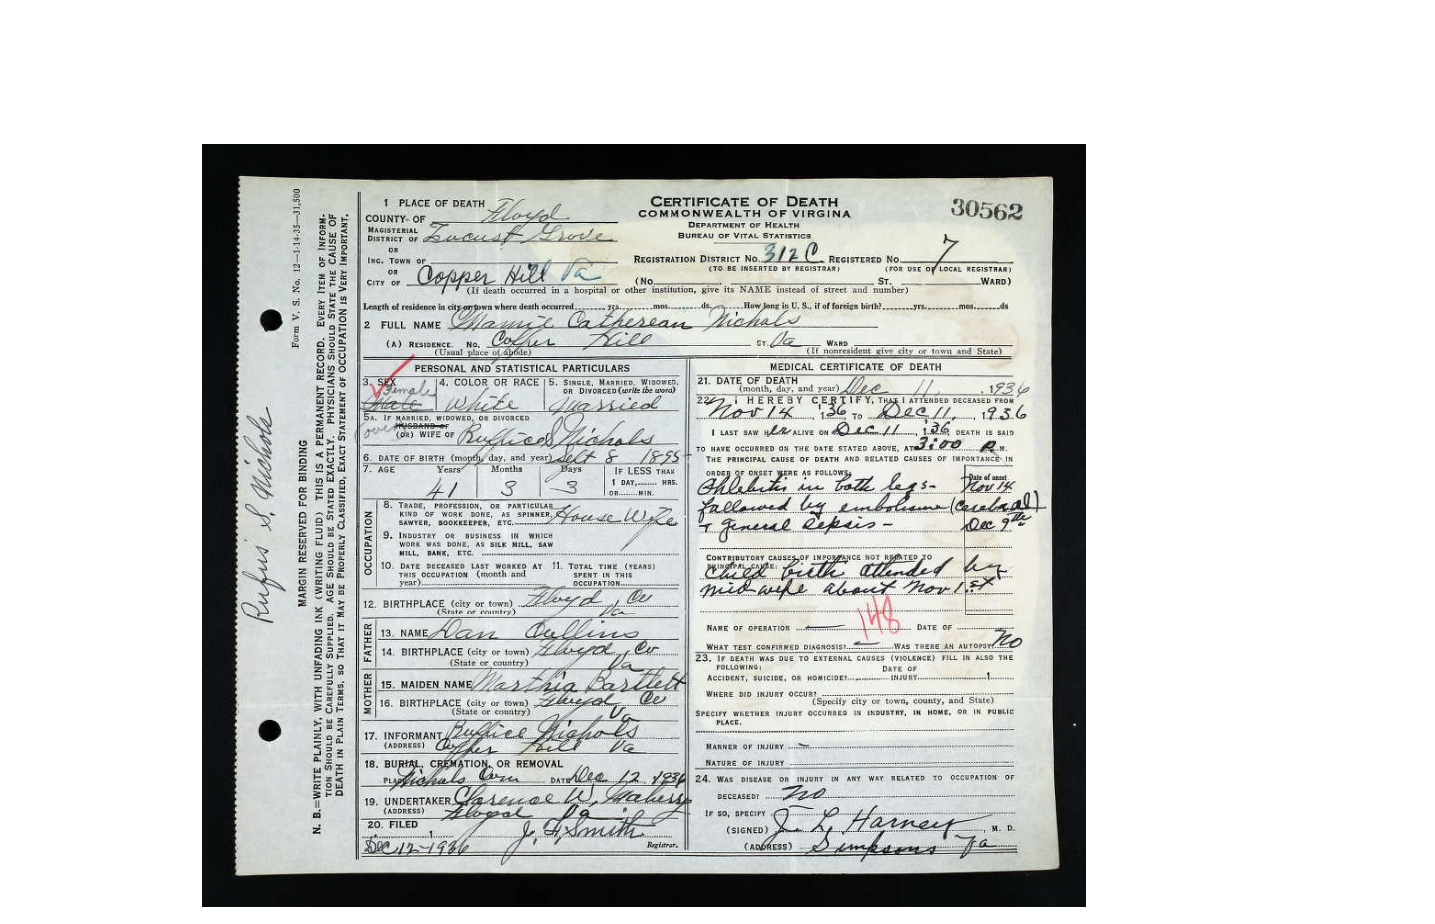 Form V. S. No. 12—1-14-35—31,500
N. B.—WRITE PLAINLY, WITH UNFADING INK (WRITING FLUID) THIS IS A PERMANENT RECORD. EVERY ITEM OF INFORM-
TION SHOULD BE CAREFULLY SUPPLIED. AGE SHOULD BE STATED EXACTLY. PHYSICIANS SHOULD STATE THE CAUSE OF
DEATH IN PLAIN TERMS, SO THAT IT MAY BE PROPERLY CLASSIFIED, EXACT STATEMENT OF OCCUPATION IS VERY IMPORTANT.
MARGIN RESERVED FOR BINDING
Rufus S. Nichols
CERTIFICATE OF DEATH
COMMONWEALTH OF VIRGINA
DEPARTMENT OF HEALTH
BUREAU OF VITAL STATISTICS
30562
1 PLACE OF DEATH
COUNTY OF Floyd
MAGISTERIAL DISTRICT OF Locust Grove
OR
INC. TOWN OF
OR
CITY OF Copper Hill Va
REGISTRATION DISTRICT NO. 312 C REGISTERED NO. 7
(TO BE INSERTED BY REGISTRAR) (FOR USE OF LOCAL REGISTRAR)
(No. ST. WARD)
(If death occurred in a hospital or other institution, give its NAME instead of street and number)
Length of residence in city or town where death occurred yrs. mos. ds. How long in U. S., if of foreign birth? yrs. mos. ds
2 FULL NAME Mamie Catherean Nichols
(A) RESIDENCE. No. Copper Hill ST. Va WARD
(Usual place of abode) (If nonresident give city or town and State)
PERSONAL AND STATISTICAL PARTICULARS
3. SEX Female Male
4. COLOR OR RACE White
5. SINGLE, MARRIED, WIDOWED, OR DIVORCED (write the word) Married
5A. IF MARRIED, WIDOWED, OR DIVORCED
HUSBAND OF
(OR) WIFE OF Ruffice S Nichols
6. DATE OF BIRTH (month, day, and year) Sept 8 1895
7. AGE Years 41 Months 3 Days 3 IF LESS THAN 1 DAY, HRS. OR MIN.
OCCUPATION
8. TRADE, PROFESSION, OR PARTICULAR KIND OF WORK DONE, AS SPINNER, SAWYER, BOOKKEEPER, ETC. House Wife
9. INDUSTRY OR BUSINESS IN WHICH WORK WAS DONE, AS SILK MILL, SAW MILL, BANK, ETC.
10. DATE DECEASED LAST WORKED AT THIS OCCUPATION (month and year)
11. TOTAL TIME (YEARS) SPENT IN THIS OCCUPATION
12. BIRTHPLACE (city or town) Floyd Co
(State or country) Va
FATHER
13. NAME Dan Cullins
14. BIRTHPLACE (city or town) Floyd Co
(State or country) Va
MOTHER
15. MAIDEN NAME Marthia Bartlett
16. BIRTHPLACE (city or town) Floyd Co
(State or country) Va
17. INFORMANT Ruffice Nichols
(ADDRESS) Copper Hill Va
18. BURIAL, CREMATION, OR REMOVAL
PLACE Nichols Cem DATE Dec 12 1936
19. UNDERTAKER Clarence W.
(ADDRESS) Floyd Va
20. FILED Dec 12-1936 J. H. Smith
Registrar.
MEDICAL CERTIFICATE OF DEATH
21. DATE OF DEATH
(month, day, and year) Dec 11, 1936
22. I HEREBY CERTIFY, THAT I ATTENDED DECEASED FROM
Nov 14, '36 TO Dec 11, 1936
I LAST SAW Her ALIVE ON Dec 11, '36 DEATH IS SAID
TO HAVE OCCURRED ON THE DATE STATED ABOVE, AT 3:00 P.M.
THE PRINCIPAL CAUSE OF DEATH AND RELATED CAUSES OF IMPORTANCE IN
ORDER OF ONSET WERE AS FOLLOWS: Date of onset
Phlebitis in both legs- Nov 14
followed by embolism (cerebral)
+ general sepsis- Dec 9th
CONTRIBUTORY CAUSES OF IMPORTANCE NOT RELATED TO PRINCIPAL CAUSE:
Child birth attended by
midwife about Nov 1st
148
NAME OF OPERATION DATE OF
WHAT TEST CONFIRMED DIAGNOSIS? WAS THERE AN AUTOPSY? No
23. IF DEATH WAS DUE TO EXTERNAL CAUSES (VIOLENCE) FILL IN ALSO THE FOLLOWING:
ACCIDENT, SUICIDE, OR HOMICIDE? DATE OF INJURY 1
WHERE DID INJURY OCCUR?
(Specify city or town, county, and State)
SPECIFY WHETHER INJURY OCCURRED IN INDUSTRY, IN HOME, OR IN PUBLIC PLACE.
MANNER OF INJURY
NATURE OF INJURY
24. WAS DISEASE OR INJURY IN ANY WAY RELATED TO OCCUPATION OF
DECEASED? No
IF SO, SPECIFY
(SIGNED) J. L. Harney, M. D.
(ADDRESS) Simpsons Va